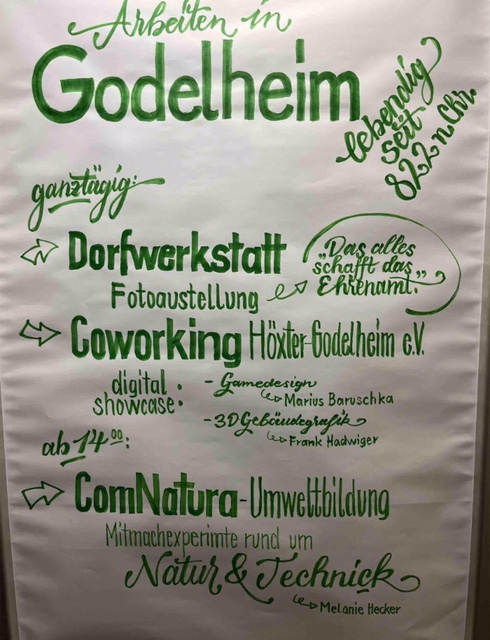 Arbeiten in
Godelheim
lebendig
seit
822 n Chr.
ganztägig:
Dorfwerkstatt
Fotoaustellung
„Das alles
schafft das
Ehrenamt.“
Coworking Höxter-Godelheim e.V.
digital
showcase:
- Gamedesign
Marius Baruschka
- 3D Gebäudegrafik
Frank Hadwiger
ab 14⁰⁰:
ComNatura-Umweltbildung
Mitmachexperimte rund um
Natur & Technick
Melanie Hecker